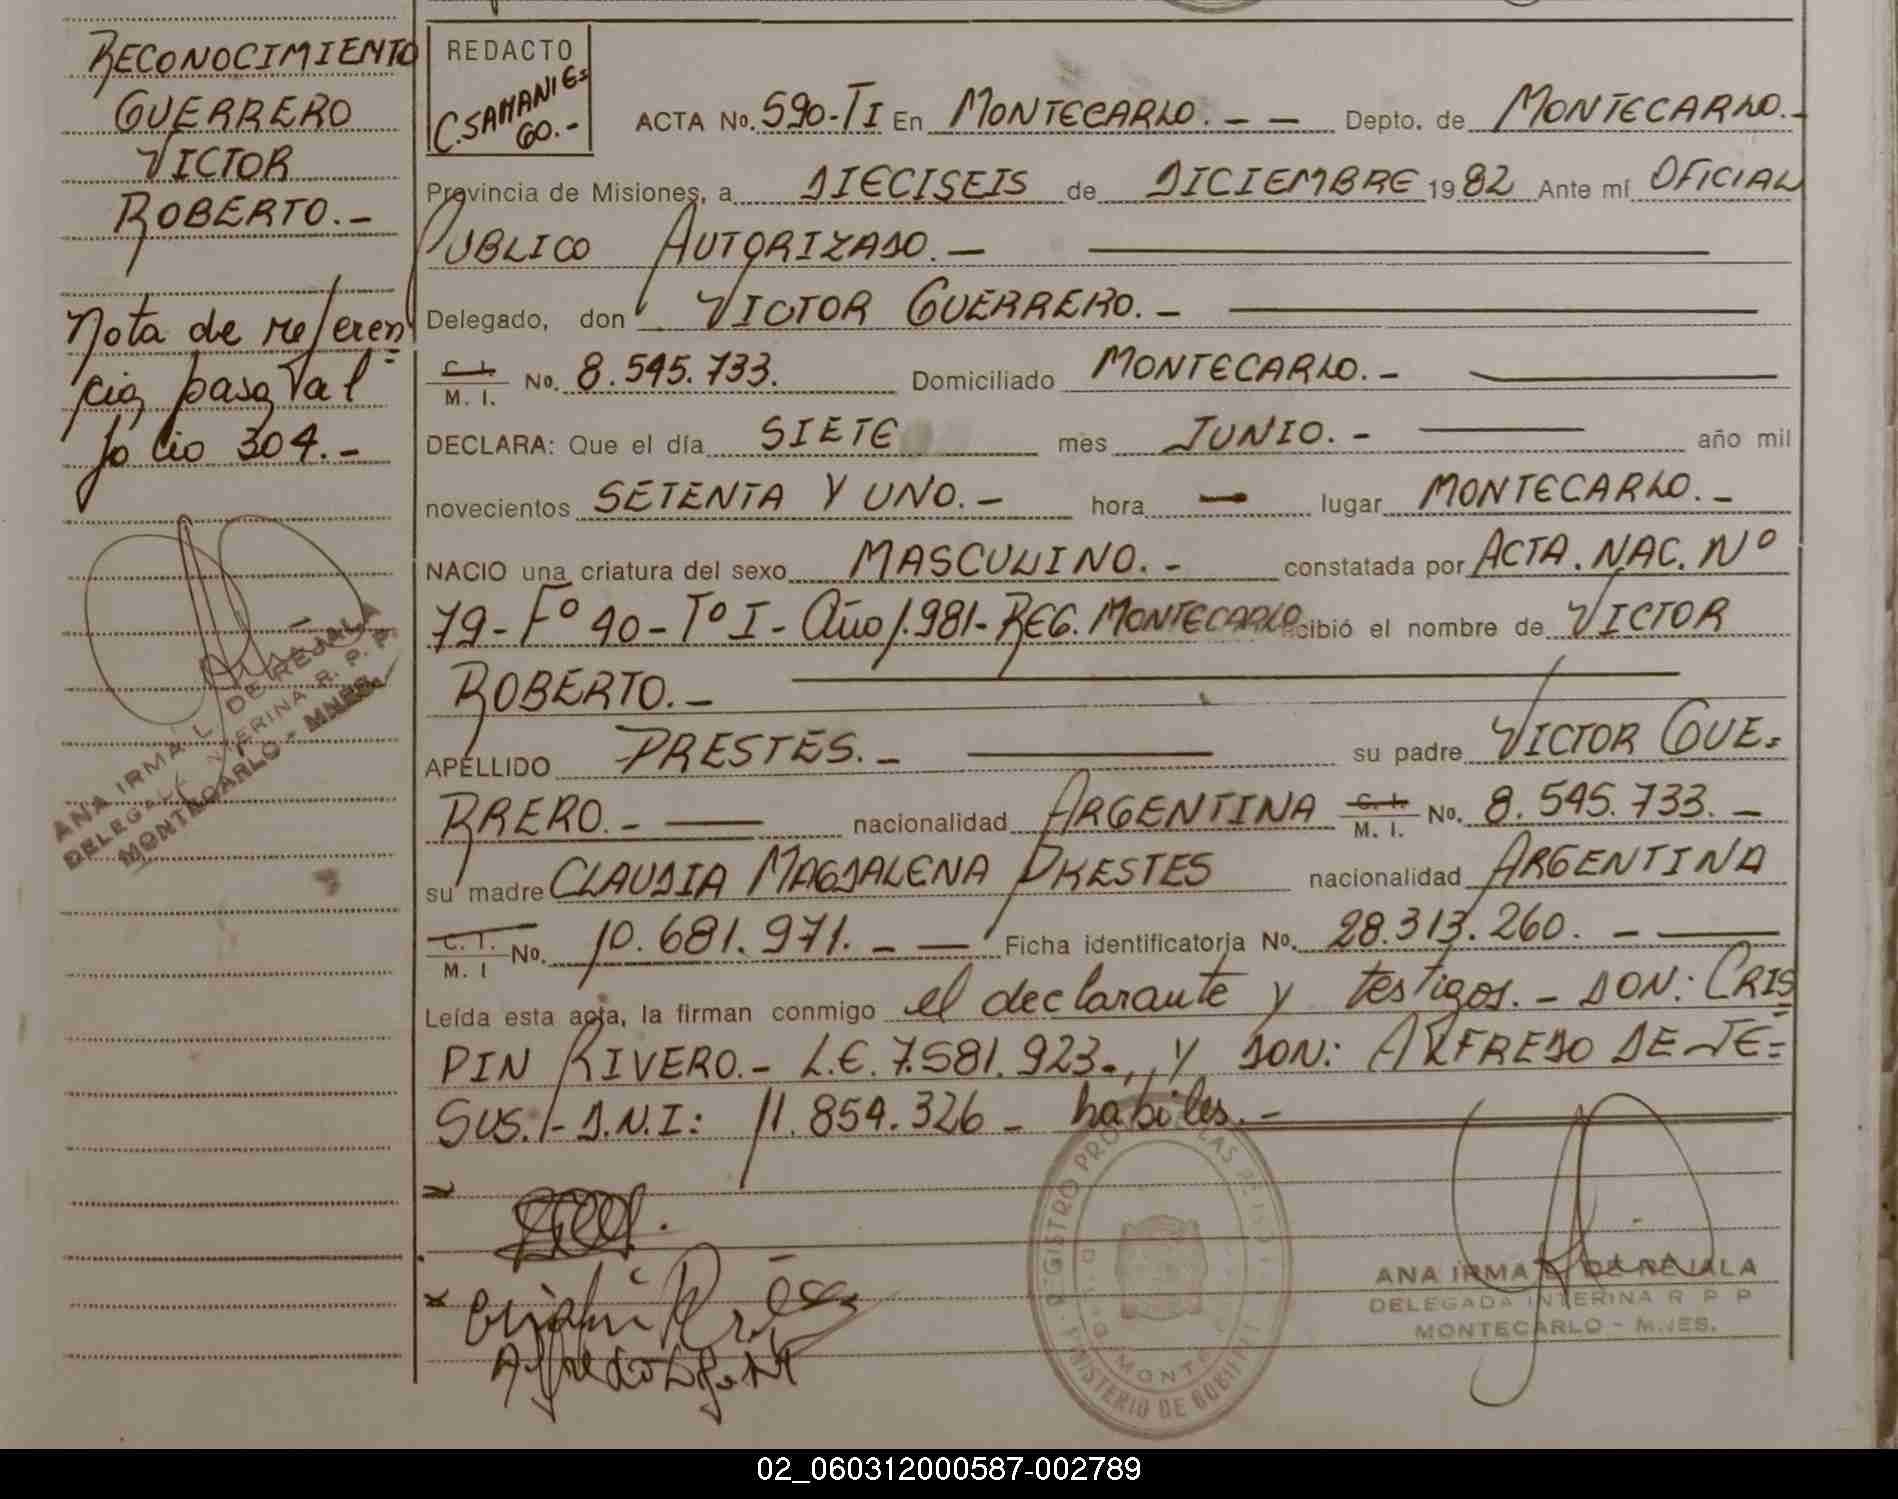 RECONOCIMIENTO
GUERRERO
VICTOR
ROBERTO.-
Nota de referen=
cia, pasa, Tal
folio 304.-
ANA IRMA L. DE REJALA
DELEGADA INTERINA R. P. P.
MONTECARLO - MNES.
REDACTO
C. SAMANIE=
GO.-
ACTA No. 590-TI En MONTECARLO. - - Depto. de MONTECARLO.-
Provincia de Misiones, a DIECISEIS de DICIEMBRE 1982 Ante mí OFICIAL
PUBLICO AUTORIZADO.-
Delegado, don VICTOR GUERRERO.-
C. I. M. I. No. 8.545.733. Domiciliado MONTECARLO.-
DECLARA: Que el día SIETE mes JUNIO.- año mil
novecientos SETENTA Y UNO.- hora - lugar MONTECARLO.-
NACIO una criatura del sexo MASCULINO.- constatada por ACTA. NAC. Nº
79- Fº 40- Tº I- Año 1.981- REG. MONTECARLO cibió el nombre de VICTOR
ROBERTO.-
APELLIDO PRESTES.- su padre VICTOR GUE=
RRERO.- nacionalidad ARGENTINA C. I. M. I. No. 8.545.733.-
su madre CLAUDIA MAGDALENA PRESTES nacionalidad ARGENTINA
C. I. M. I No. 10.681.971.- - Ficha identificatoria No. 28.313.260.-
Leída esta acta, la firman conmigo el declarante y testigos.- DON: CRIS
PIN RIVERO.- L.E. 7.581.923.-,, Y DON: ALFREDO DE JE=
SUS.- D.N.I: 11.854.326 - habiles.-
REGISTRO PRO LAS PE
MONTE
MINISTERIO DE GOBIERN
ANA IRMA L. DE REJALA
DELEGADA INTERINA R P P
MONTECARLO - MNES.
02_060312000587-002789